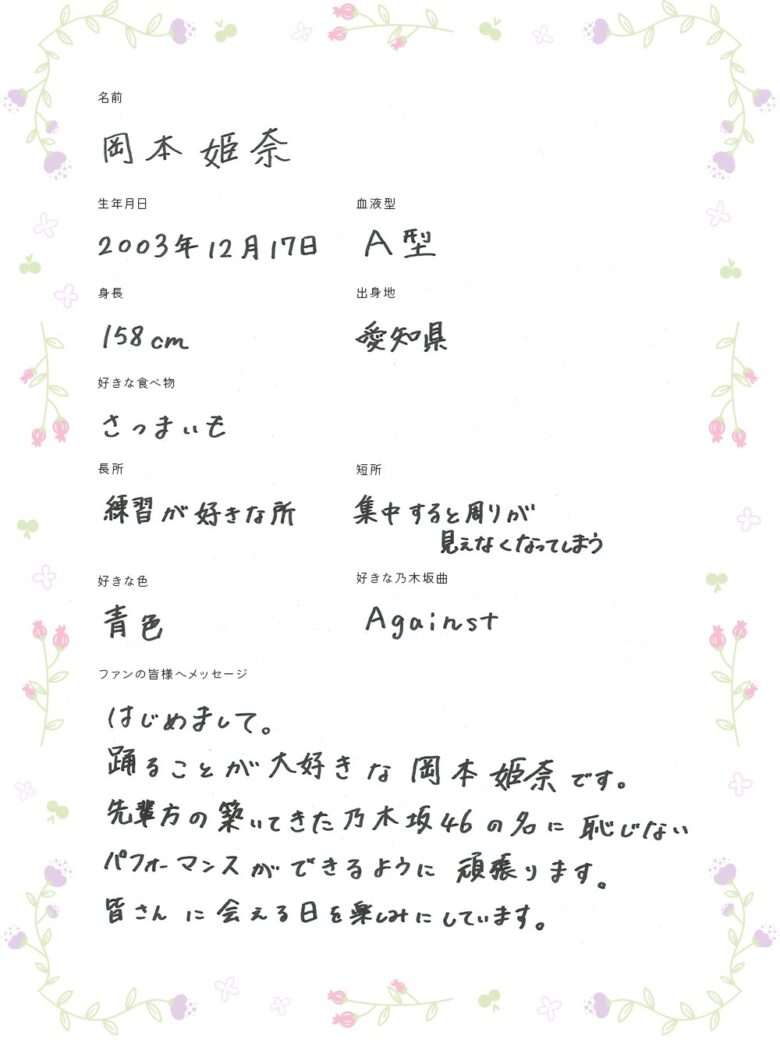 名前
岡本姫奈
生年月日 血液型
2003年12月17日 A型
身長 出身地
158cm 愛知県
好きな食べ物
さつまいも
長所 短所
練習が好きな所 集中すると周りが
見えなくなってしまう
好きな色 好きな乃木坂曲
青色 Against
ファンの皆様へメッセージ
はじめまして。
踊ることが大好きな岡本姫奈です。
先輩方の築いてきた乃木坂46の名に恥じない
パフォーマンスができるように頑張ります。
皆さんに会える日を楽しみにしています。